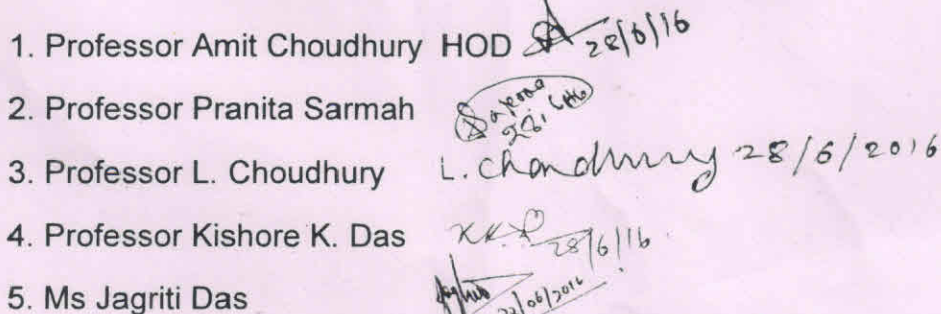 1. Professor Amit Choudhury HOD 28/6/16
2. Professor Pranita Sarmah
3. Professor L. Choudhury L. Choudhury 28/6/2016
4. Professor Kishore K. Das 28/6/16
5. Ms Jagriti Das